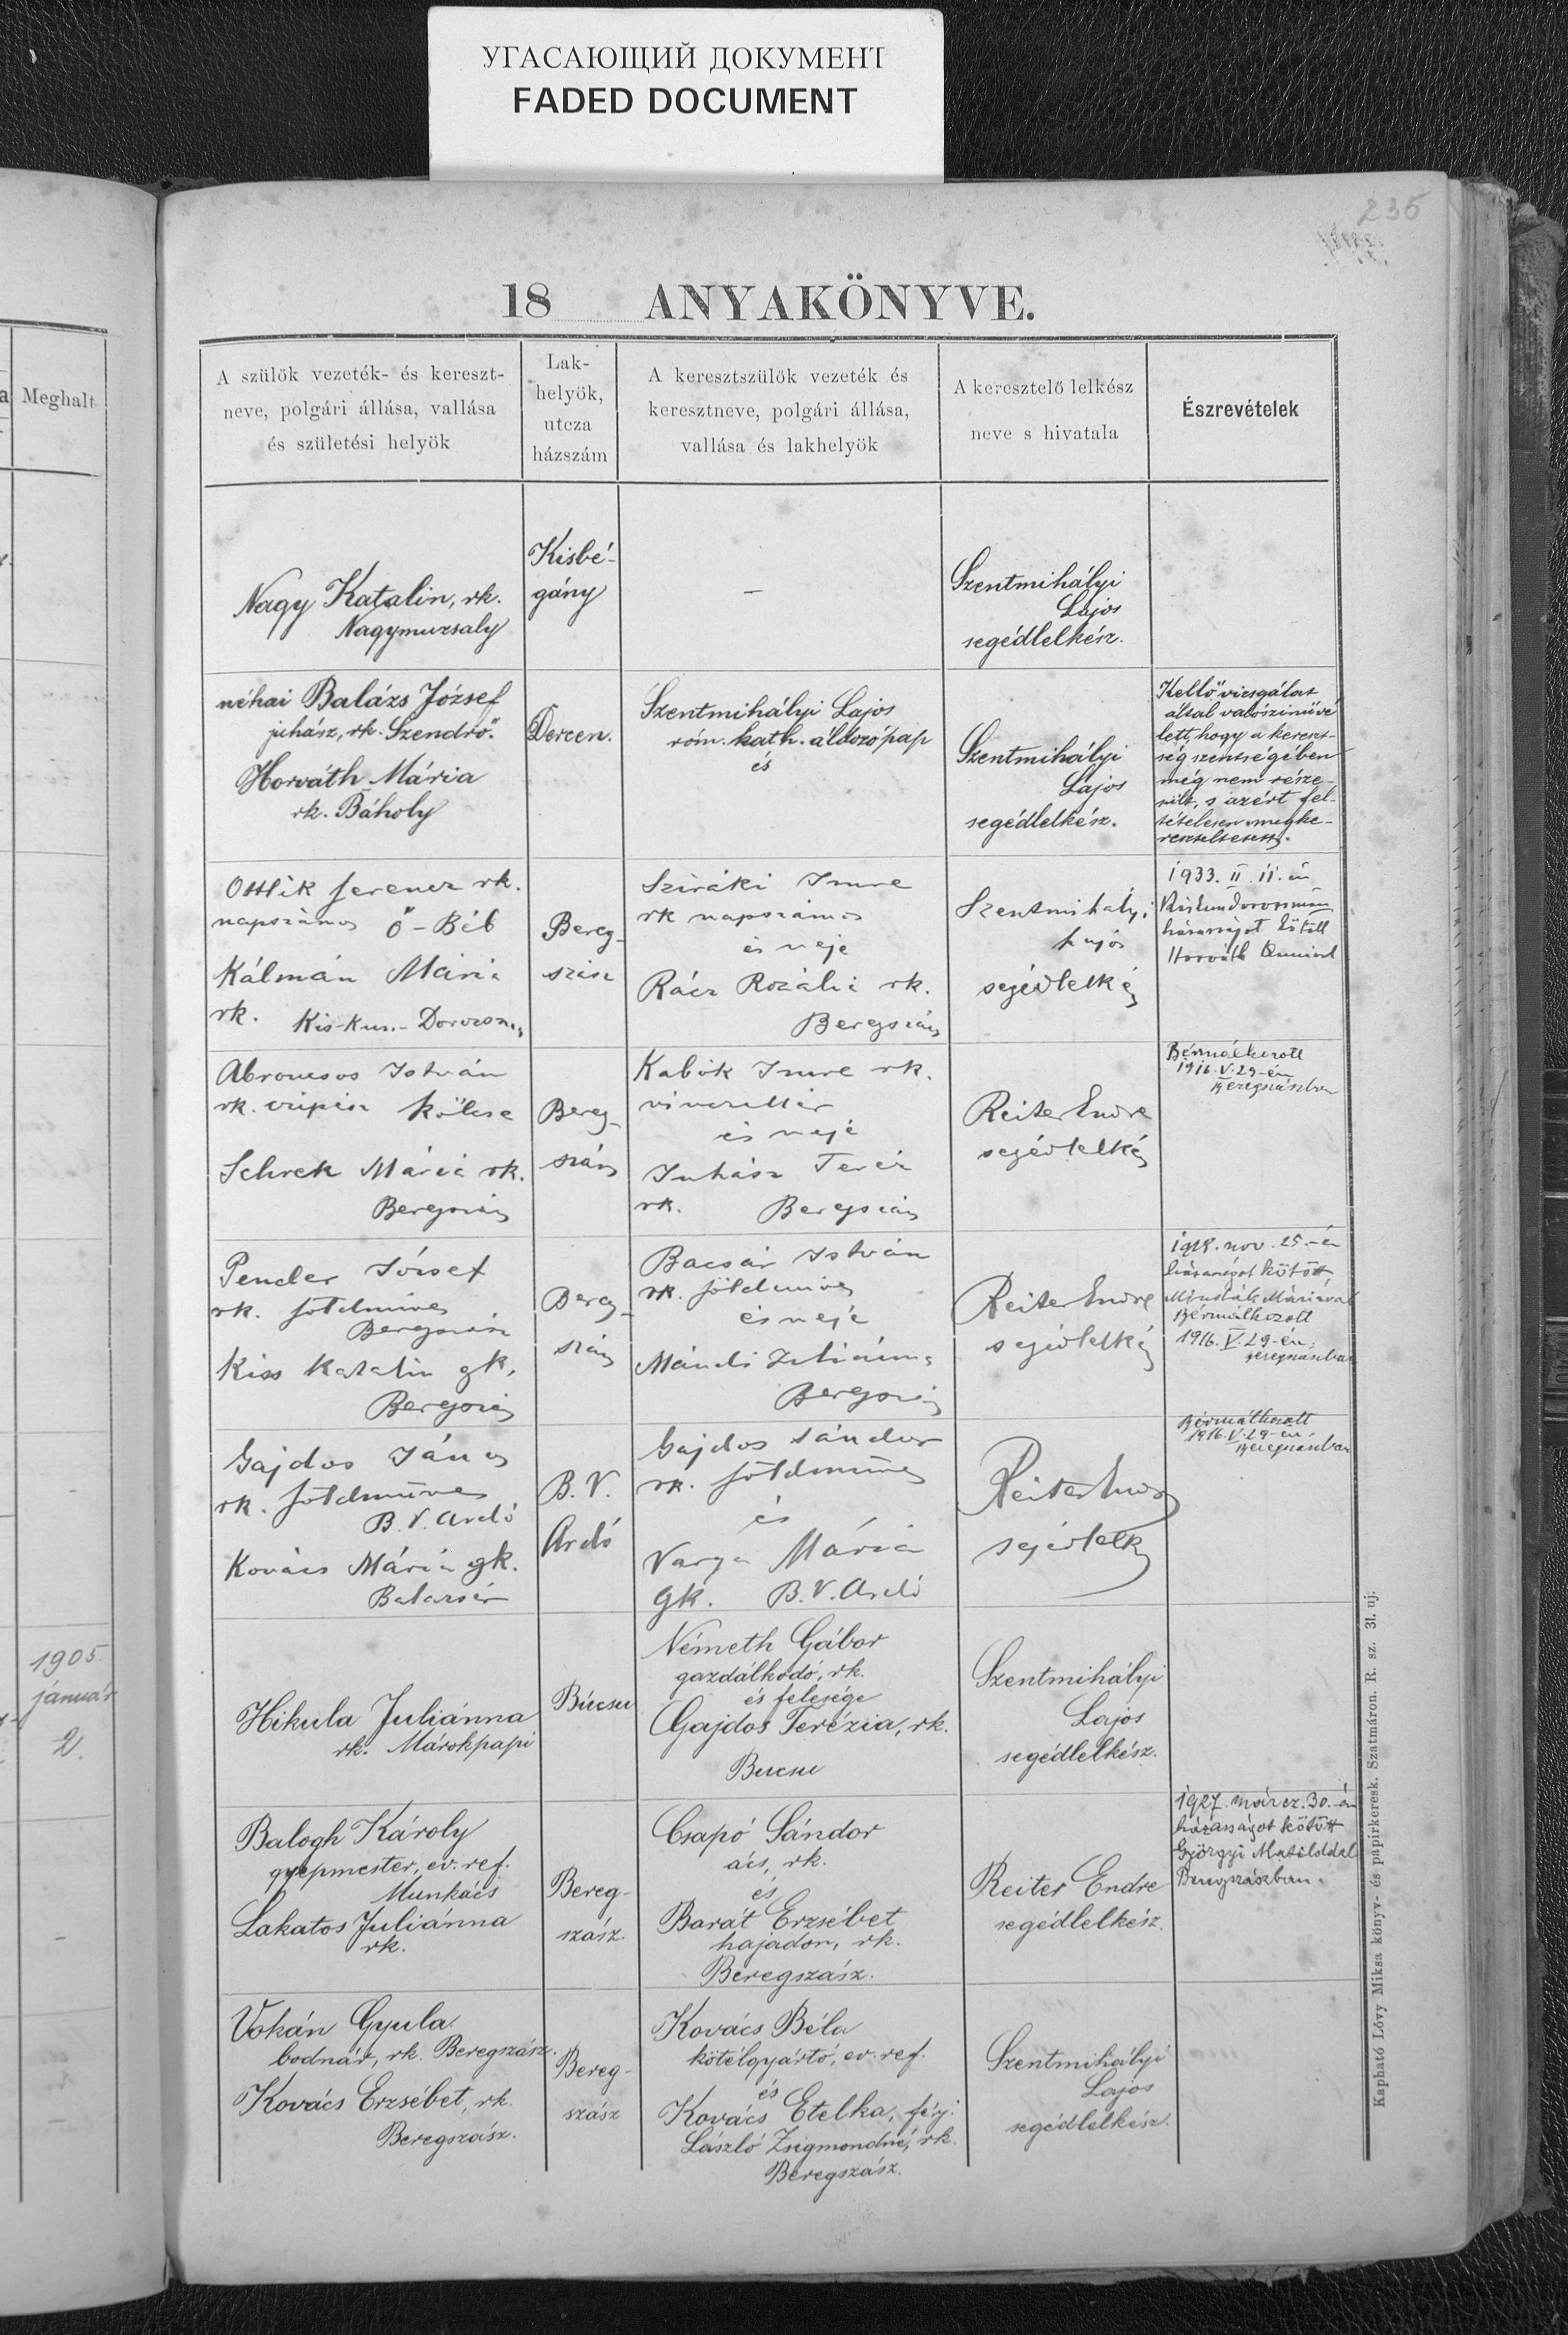 УГАСАЮЩИЙ ДОКУМЕНТ
FADED DOCUMENT
235
18 ANYAKÖNYVE.
a Meghalt
1905.
január
2.
A szülök vezeték- és kereszt-
neve, polgári állása, vallása
és születési helyök
Lak-
helyök,
utcza
házszám
A keresztszülök vezeték és
keresztneve, polgári állása,
vallása és lakhelyök
A keresztelő lelkész
neve s hivatala
Észrevételek
Nagy Katalin, rk.
Nagymuzsaly
Kisbé-
gány
–
Szentmihályi
Lajos
segédlelkész.
néhai Balázs József
juhász, rk. Szendrő.
Horváth Mária
rk. Báholy
Dercen.
Szentmihályi Lajos
róm. kath. áldozópap
és
Szentmihályi
Lajos
segédlelkész.
Kellő vizsgálat
által valószinüvé
lett, hogy a kereszt-
ség szentségében
még nem része-
sült, s azért fel-
tételesen megke-
reszteltetett.
Ottlik Ferencz rk.
napszámos Ó-Béb
Kálmán Mária
rk. Kis-Kun.-Dorozsma
Bereg-
szász
Sziráki Imre
rk napszámos
és neje
Rácz Rozália rk.
Beregszász
Szentmihályi
Lajos
segédlelkész
1933. II. 11.-én
Kiskundorozsmán
házasságot kötött
Horváth
Abroncsos István
rk. Kölcse
Schrek Mária rk.
Beregszász
Bereg-
szász
Kabók Imre rk.
és neje
Juhász Teréz
rk. Beregszász
Reiter Endre
segédlelkész
Bérmálkozott
1916. V. 29-én
Beregszászban
Pender József
rk. földmíves
Beregszász
Kiss Katalin gk.
Beregszász
Bereg-
szász
Bacsár István
rk. földmíves
és neje
Mándi Juliánna
Beregszász
Reiter Endre
segédlelkész
1928. nov. 25.-én
házasságot kötött
Máriával
Bérmálkozott
1916. V. 29-én
Beregszászban
Gajdos János
rk. földmüves
B. V. Ardó
Kovács Mária gk.
Batarsár
B. V.
Ardó
Gajdos Sándor
rk. földmüves
és
Varga Mária
gk. B. V. Ardó
Reiter Endre
segédlelk
Bérmálkozott
1916. V. 29-én
Beregszászban
Hikula Juliánna
rk. Márokpapi
Búcsu
Németh Gábor
gazdálkodó, rk.
és felesége
Gajdos Terézia, rk.
Bucsu
Szentmihályi
Lajos
segédlelkész.
Balogh Károly
gyepmester, ev. ref.
Munkács
Lakatos Juliánna
rk.
Bereg-
szász.
Csapó Sándor
ács, rk.
és
Barát Erzsébet
hajadon, rk.
Beregszász.
Reiter Endre
segédlelkész.
1927. márcz. 30.-án
házasságot kötött
Györgyi Matilddal
Beregszászban.
Vokán Gyula
bodnár, rk. Beregszász.
Kovács Erzsébet, rk.
Beregszász.
Bereg-
szász
Kovács Béla
kötélgyártó, ev. ref.
és
Kovács Etelka, férj.
László Zsigmondné, rk.
Beregszász.
Szentmihályi
Lajos
segédlelkész.
Kapható Lővy Miksa könyv- és papirkeresk. Szatmáron. R. sz. 31. uj.